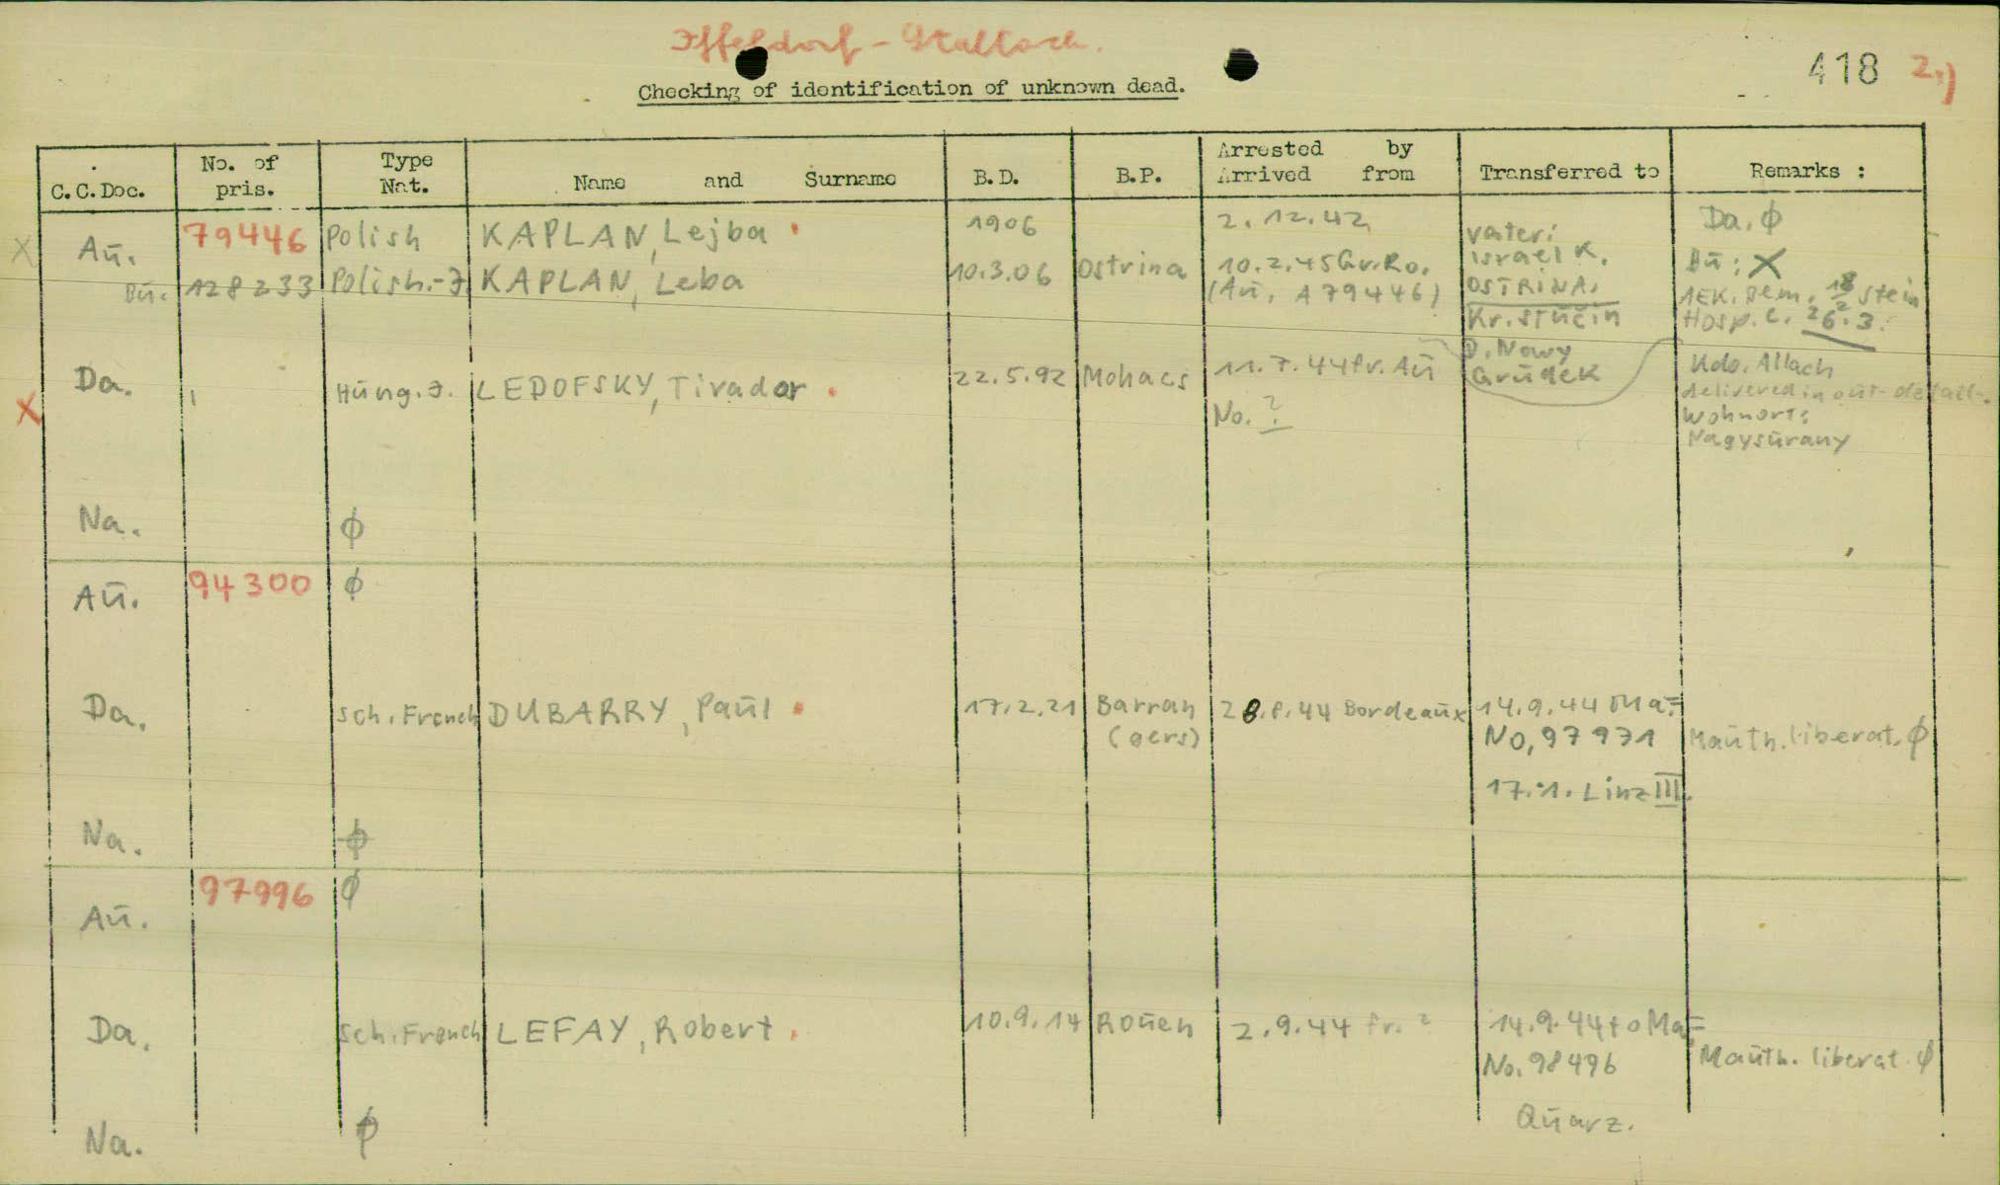 Iffeldorf - Staltach.
418 2.)
Checking of identification of unknown dead.
C.C.Doc. No. of pris. Type Nat. Name and Surname B.D. B.P. Arrested by Arrived from Transferred to Remarks :
Aū. 79446 Polish KAPLAN, Lejba 1906 2.12.42 Da. ϕ
Bū. 128233 Polish.-J KAPLAN, Leba 10.3.06 Ostrina 10.2.45 Gr.Ro. (Aū. A 79446)
Vater:
Israel K.
OSTRINA.
Kr. Stūčin
D. Nowy
Grūdek
Bū: X
Stein
Hosp. 26.3.
X Da. Hūng.J. LEDOFSKY, Tivador 22.5.92 Mohacs 11.7.44 fr. Aū
No. ?
Kdo. Allach
delivered in oūt-detail.
Wohnort:
Nagysūrany
Na. ϕ
Aū. 94300 ϕ
Da. Sch. French DUBARRY, Paūl 17.2.21 Barran (Gers) Bordeaūx 14.9.44 Ma=
No, 97971 Maūth. liberat. ϕ
Linz III.
Na. ϕ
Aū. 97996 ϕ
Da. Sch. French LEFAY, Robert 10.9.14 Roūen 2.9.44 fr. ? 14.9.44 to Ma=
No. 98496 Maūth. liberat. ϕ
Qūarz.
Na. ϕ